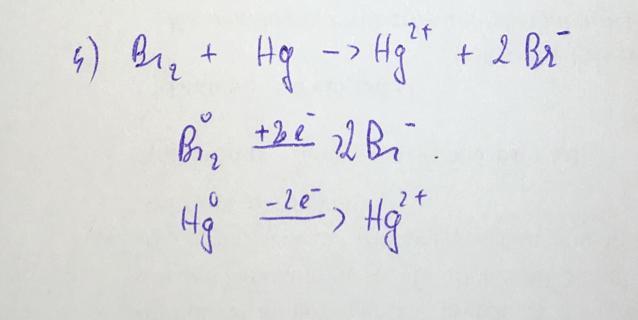 4) Br₂ + Hg -> Hg²⁺ + 2 Br⁻
Br₂⁰ +2e⁻ -> 2Br⁻.
Hg⁰ -2e⁻ -> Hg²⁺